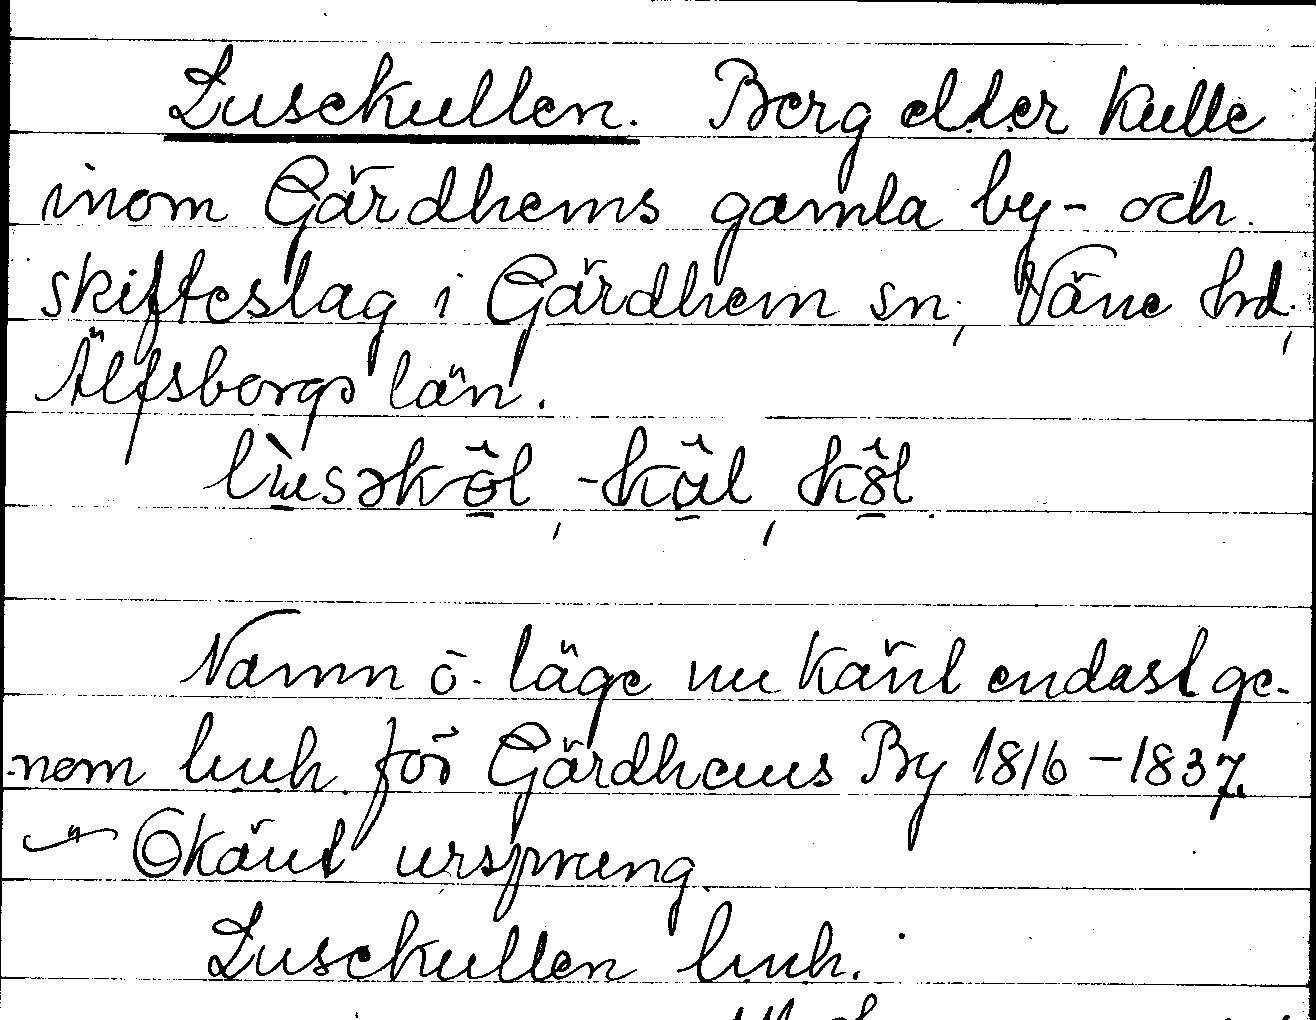 Lusekullen. Berg eller kulle
inom Gärdhems gamla by- och
skifteslag i Gärdhem sn, Väne hd,
Älfsborgs län.
lùsəkö̂l, -kâl, kô̂l.
Namn o. läge nu känt endast ge-
nom lmh. för Gärdhems By 1816–1837.
Okänt ursprung.
Lusekullen lmh.